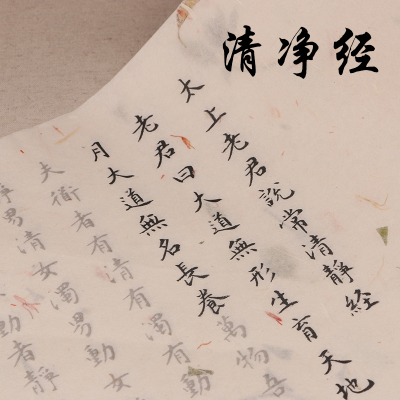 清净经
太上老君說常清靜経
老君曰大道無形生育天地
月大道無名長養萬物吾
夫衜者有清有濁有動
靜男清女濁男動女
動者靜